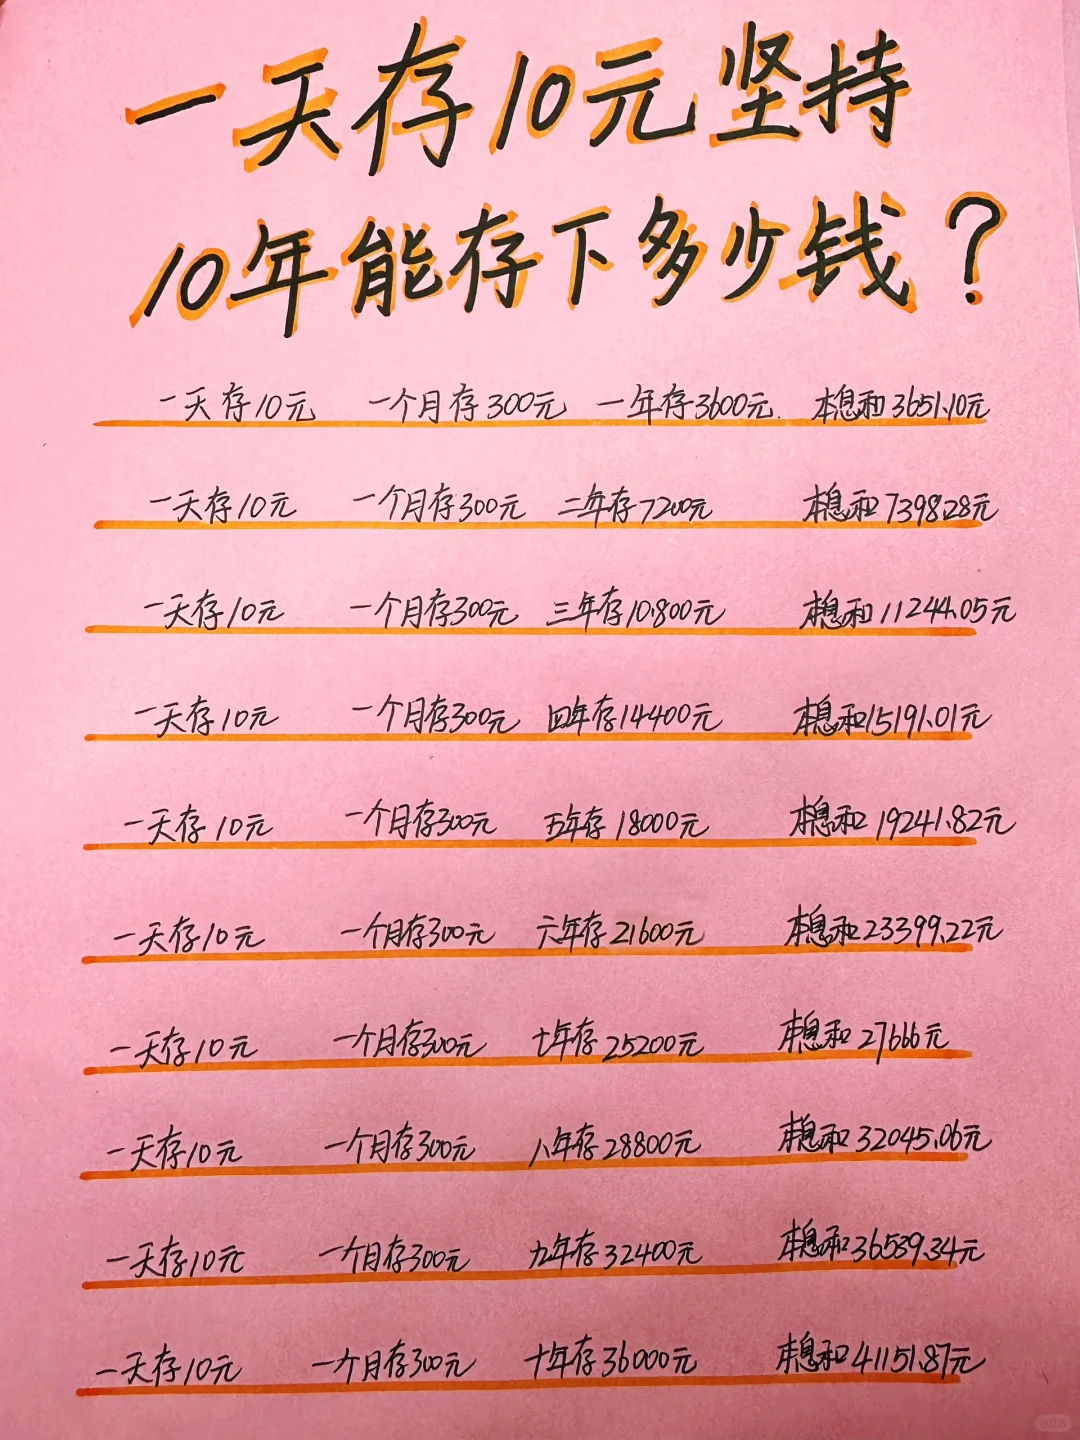 一天存10元坚持
10年能存下多少钱？
一天存10元 一个月存300元 一年存3600元. 本息和3651.10元
一天存10元 一个月存300元 二年存7200元 本息和7398.28元
一天存10元 一个月存300元 三年存10.800元 本息和11244.05元
一天存10元 一个月存300元 四年存14400元 本息和15191.01元
一天存10元 一个月存300元 五年存18000元 本息和19241.82元
一天存10元 一个月存300元 六年存21600元 本息和23399.22元
一天存10元 一个月存300元 七年存25200元 本息和27666元
一天存10元 一个月存300元 八年存28800元 本息和32045.06元
一天存10元 一个月存300元 九年存32400元 本息和36539.34元
一天存10元 一个月存300元 十年存36000元 本息和41151.87元
小红书